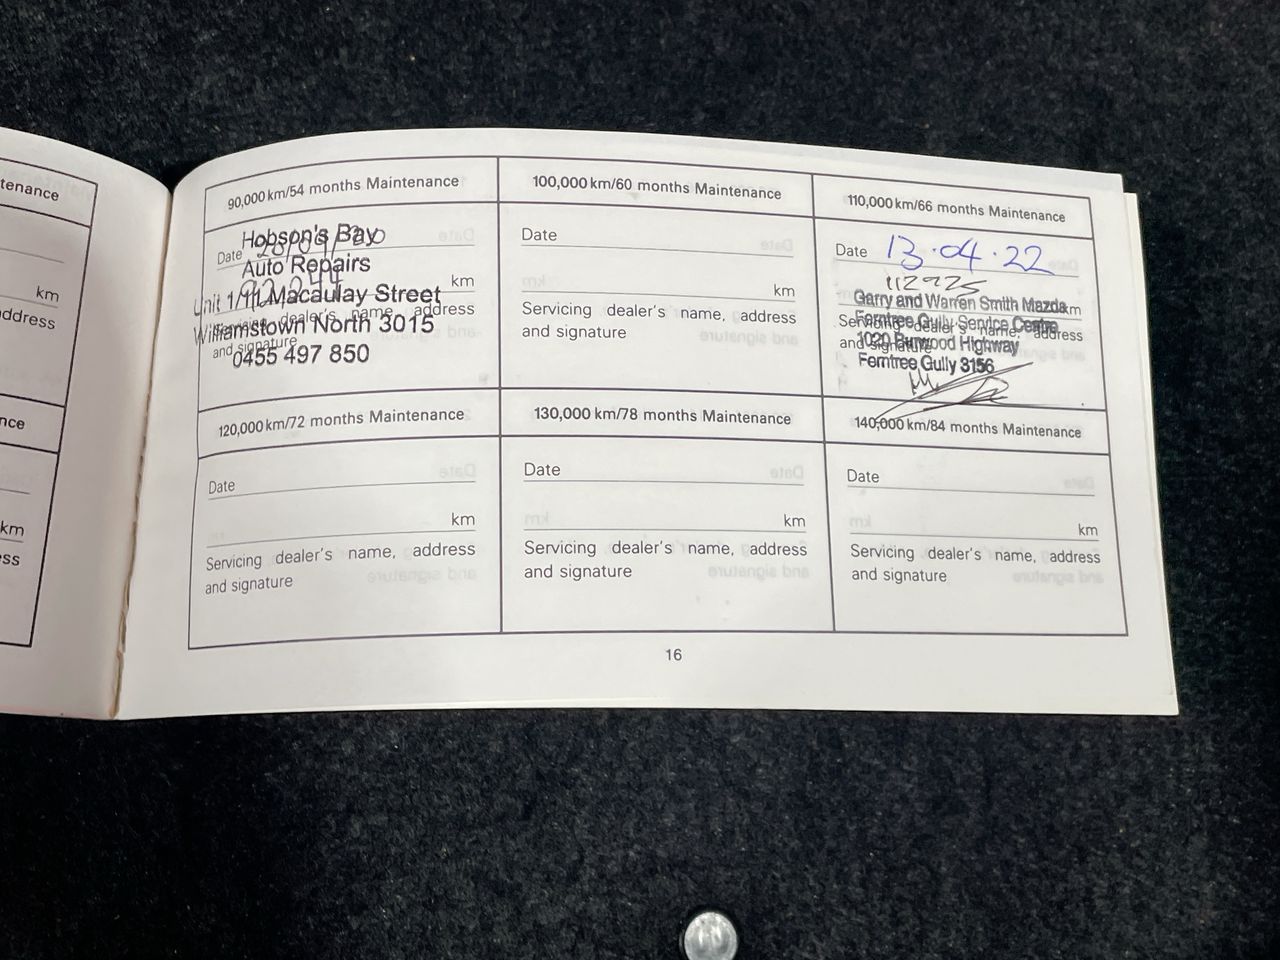 tenance
km
address
nce
km
ess
90,000 km/54 months Maintenance
Date
Hobson's Bay
Auto Repairs
km
Unit 1/111 Macaulay Street
Servicing dealer's name, address
Williamstown North 3015
and signature
0455 497 850
100,000 km/60 months Maintenance
Date
km
Servicing dealer's name, address
and signature
110,000 km/66 months Maintenance
Date 13.04.22
Garry and Warren Smith Mazda
km
Ferntree Gully Service Centre
Servicing dealer's name, address
1020 Burwood Highway
and signature
Ferntree Gully 3156
120,000 km/72 months Maintenance
Date
km
Servicing dealer's name, address
and signature
130,000 km/78 months Maintenance
Date
km
Servicing dealer's name, address
and signature
140,000 km/84 months Maintenance
Date
km
Servicing dealer's name, address
and signature
16